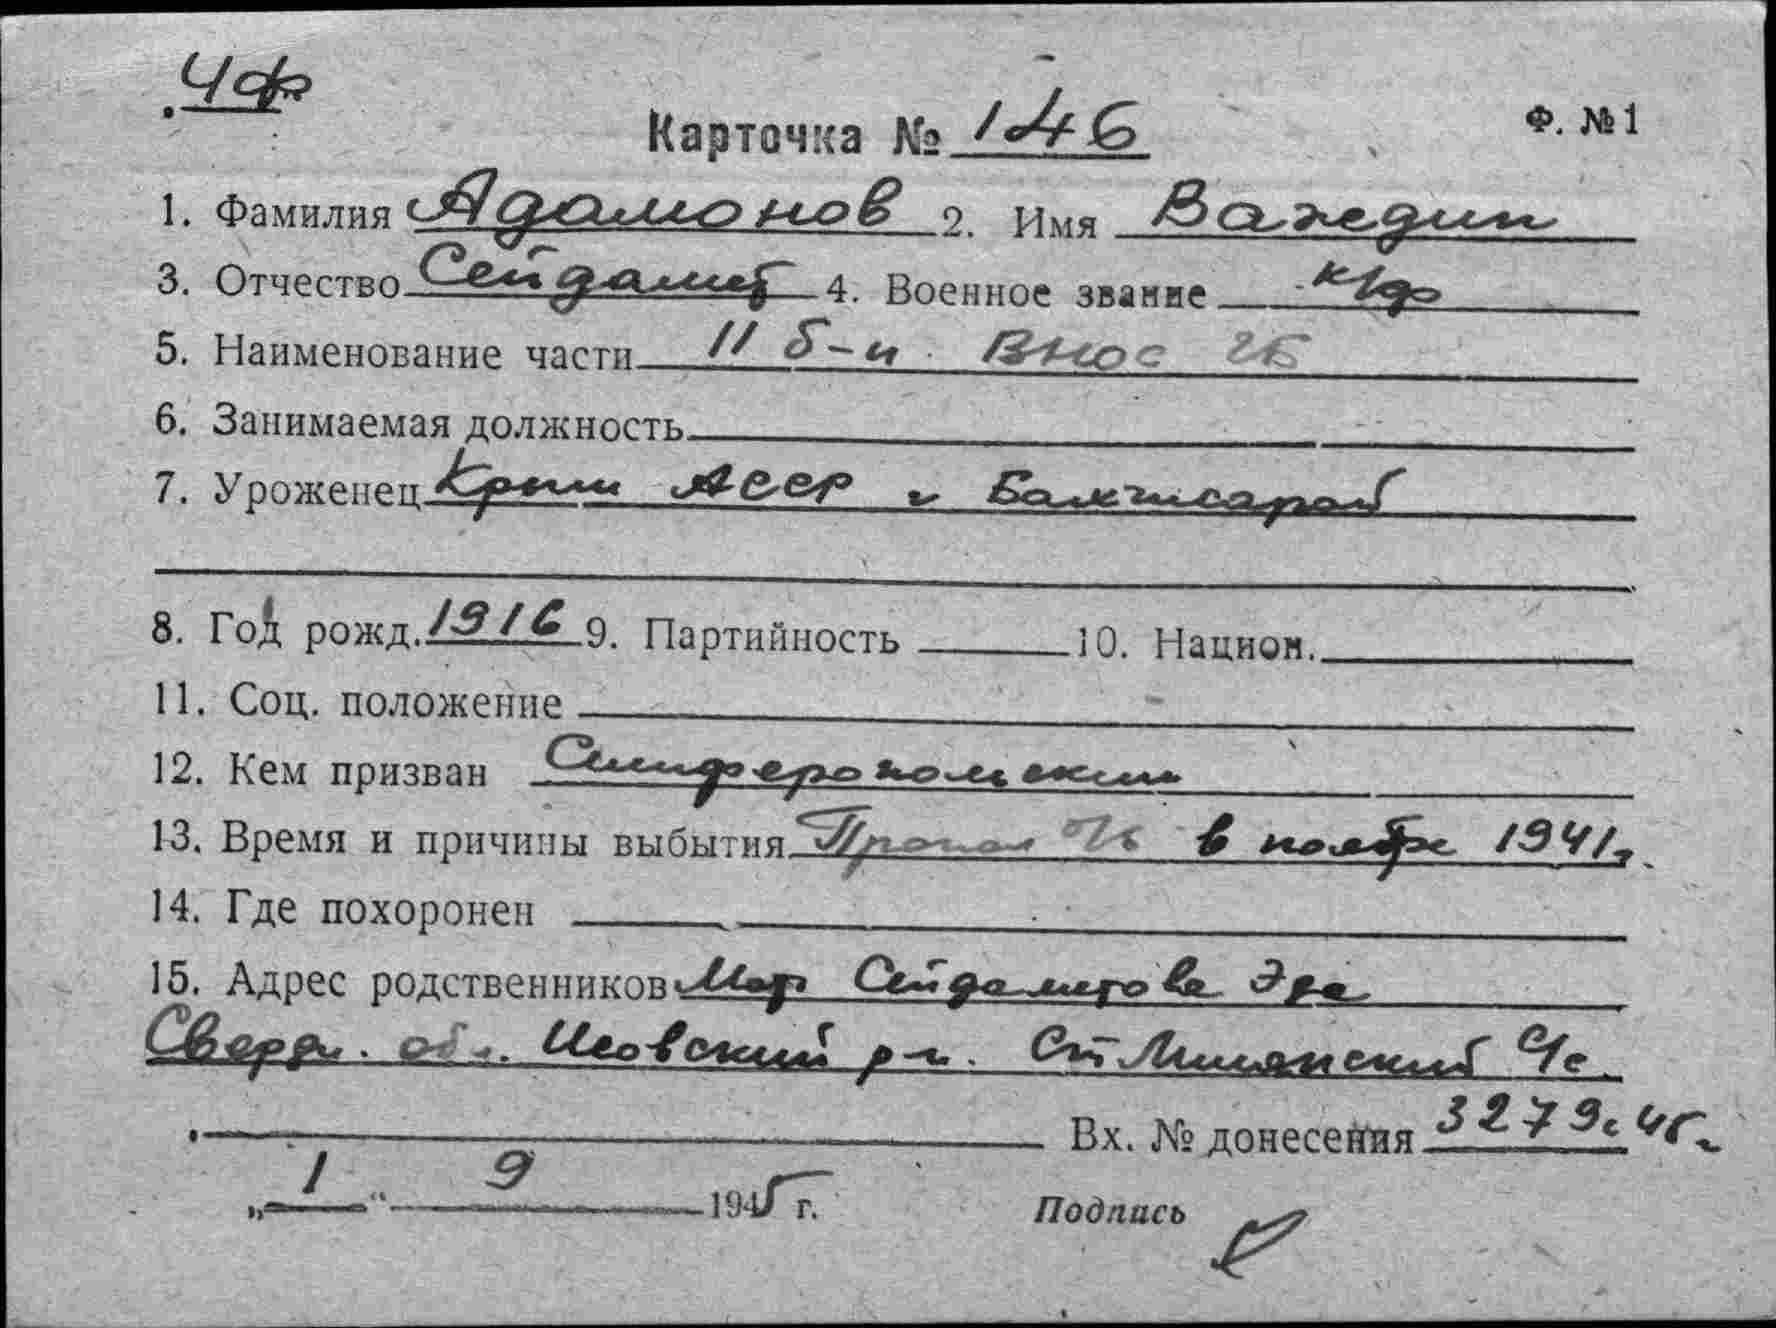 ЧФ
Карточка № 146 Ф. №1
1. Фамилия Адаманов 2. Имя Важедин
3. Отчество Сейдамет 4. Военное звание к/ф
5. Наименование части 11 б-н Внос
6. Занимаемая должность
7. Уроженец Крым АССР г Бахчисарай
8. Год рожд. 1916 9. Партийность 10. Национ.
11. Соц. положение
12. Кем призван Симферопольским
13. Время и причины выбытия Пропал в ноябре 1941г.
14. Где похоронен
15. Адрес родственников Сейдаметова
Сверд. об. р-н.
Вх. № донесения 3279с 45г.
„1“ 9 1945 г. Подпись